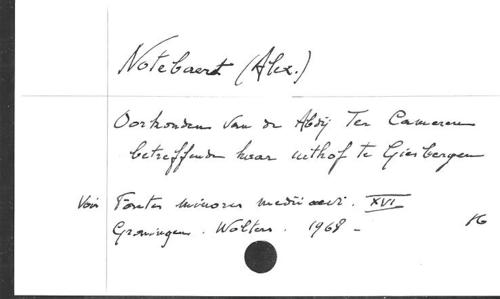 Notebaert (Alex.)
Oorkonden van de Abdij Ter Cameren
betreffende haar uithof te Giesbergen
Voir Fontes minores medii aevi. XVI
Groningen. Wolters. 1968 -